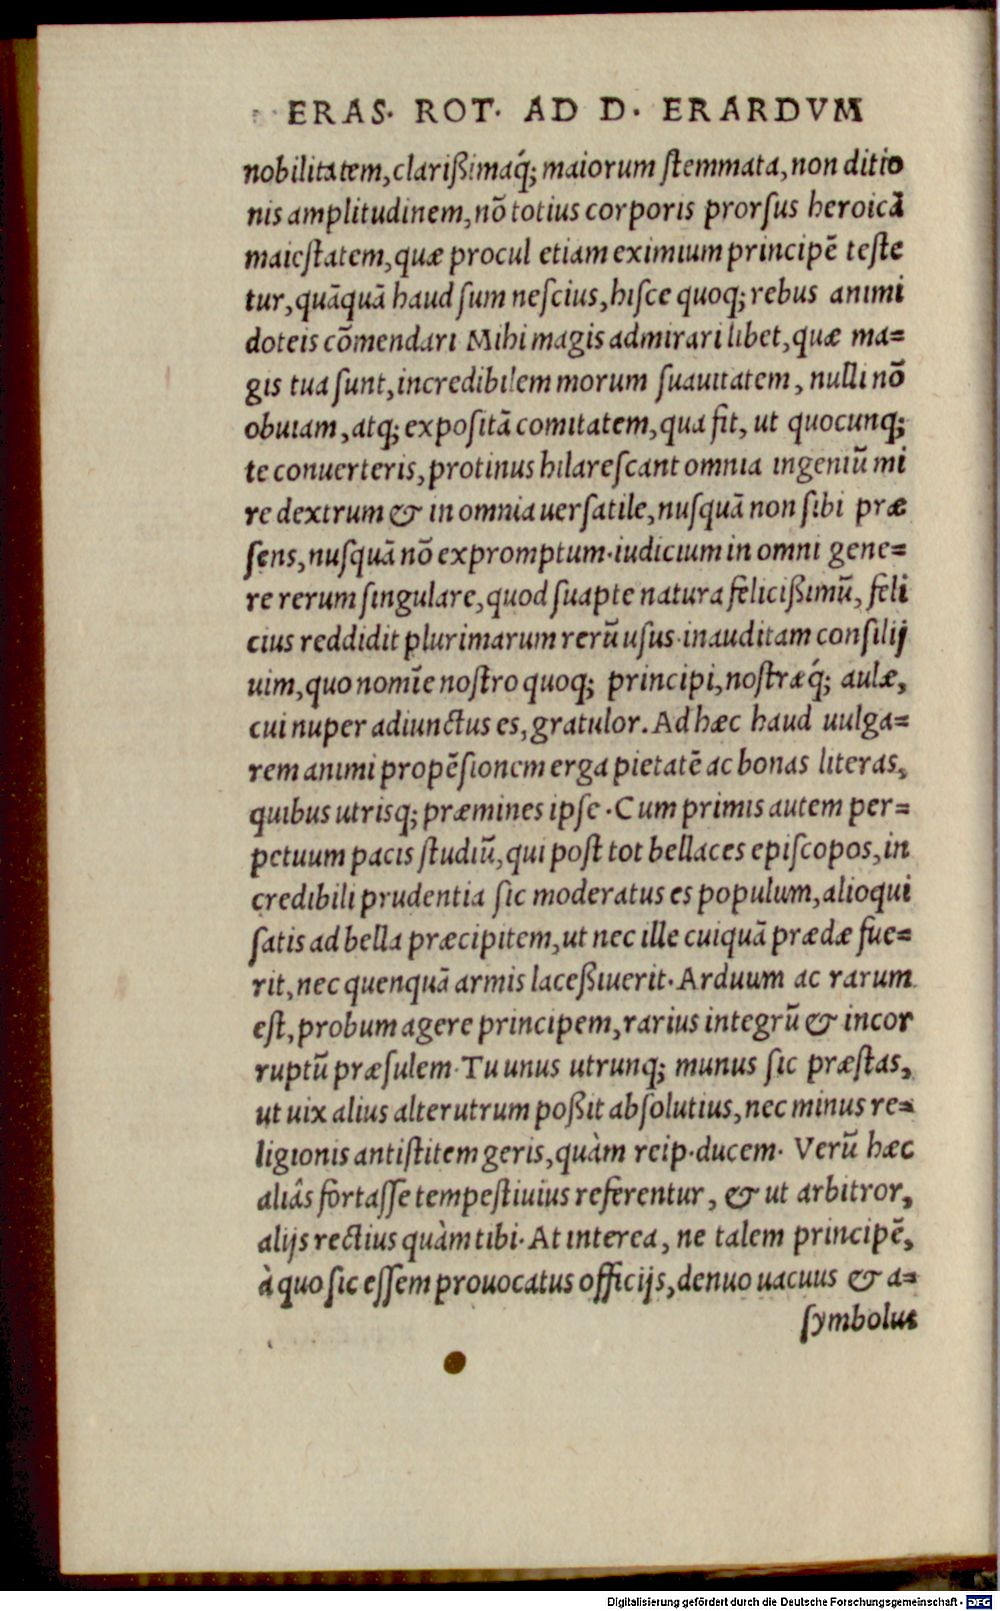 ERAS. ROT. AD D. ERARDVM
nobilitatem, clarißimaq́; maiorum ſtemmata, non ditio
nis amplitudinem, nõ totius corporis prorſus heroicã
maieſtatem, quæ procul etiam eximium principẽ teſte
tur, quãquã haud ſum neſcius, hiſce quoq; rebus animi
doteis cõmendari Mihi magis admirari libet, quæ ma=
gis tua ſunt, incredibilem morum ſuauitatem, nulli nõ
obuiam, atq; expoſitã comitatem, qua fit, ut quocunq;
te conuerteris, protinus hilareſcant omnia ingeniũ mi
re dextrum & in omnia uerſatile, nuſquã non ſibi præ
ſens, nuſquã nõ expromptum. iudicium in omni gene=
re rerum ſingulare, quod ſuapte natura felicißimũ, feli
cius reddidit plurimarum rerũ uſus. inauditam conſilij
uim, quo nomĩe noſtro quoq; principi, noſtræq́; aulæ,
cui nuper adiunctus es, gratulor. Ad hæc haud uulga=
rem animi propẽſionem erga pietatẽ ac bonas literas,
quibus utrisq; præmines ipſe. Cum primis autem per=
petuum pacis ſtudiũ, qui poſt tot bellaces epiſcopos, in
credibili prudentia ſic moderatus es populum, alioqui
ſatis ad bella præcipitem, ut nec ille cuiquã prædæ fue=
rit, nec quenquã armis laceßiuerit. Arduum ac rarum
eſt, probum agere principem, rarius integrũ & incor
ruptũ præſulem. Tu unus utrunq; munus ſic præſtas,
ut uix alius alterutrum poßit abſolutius, nec minus re=
ligionis antiſtitem geris, quàm reip. ducem. Verũ hæc
aliâs fortaſſe tempeſtiuius referentur, & ut arbitror,
alijs rectius quàm tibi. At interea, ne talem principẽ,
à quo ſic eſſem prouocatus officijs, denuo uacuus & a=
ſymbolus
Digitalisierung gefördert durch die Deutsche Forschungsgemeinschaft - DFG